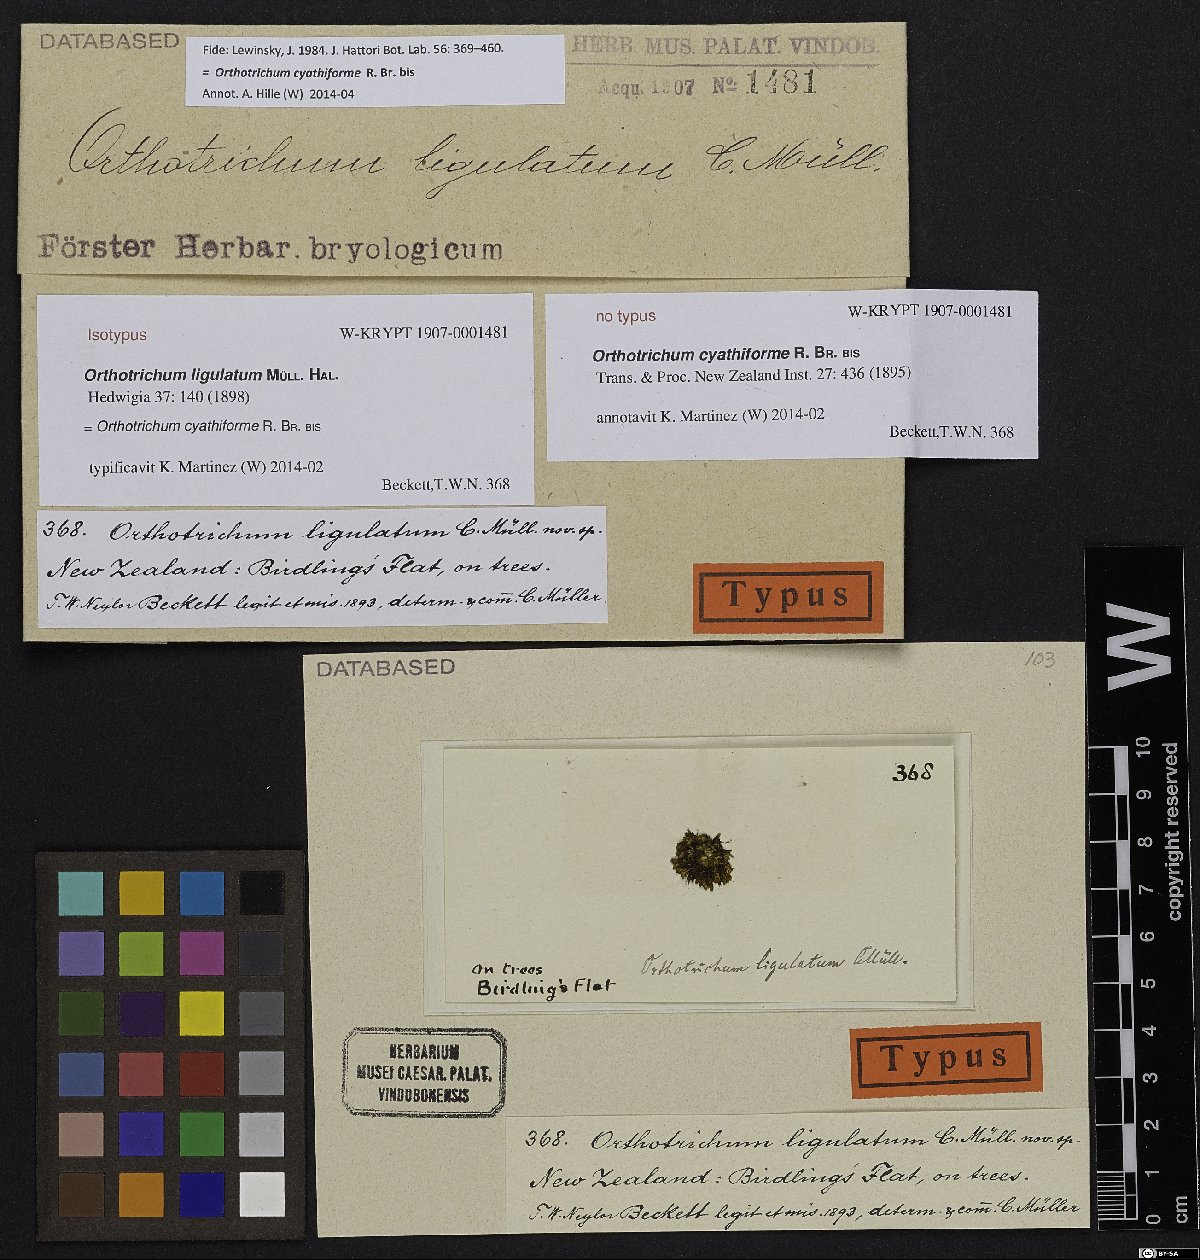 DATABASED
Fide: Lewinsky, J. 1984. J. Hattori Bot. Lab. 56: 369–460.
= Orthotrichum cyathiforme R. Br. bis
Annot. A. Hille (W) 2014-04
HERB. MUS. PALAT. VINDOB.
Acqu. 1907 No. 1481
Orthotrichum ligulatum C. Müll.
Förster Herbar. bryologicum
Isotypus
W-KRYPT 1907-0001481
Orthotrichum ligulatum MÜLL. HAL.
Hedwigia 37: 140 (1898)
= Orthotrichum cyathiforme R. BR. BIS
typificavit K. Martinez (W) 2014-02
Beckett,T.W.N. 368
no typus
W-KRYPT 1907-0001481
Orthotrichum cyathiforme R. BR. BIS
Trans. & Proc. New Zealand Inst. 27: 436 (1895)
annotavit K. Martinez (W) 2014-02
Beckett,T.W.N. 368
368. Orthotrichum ligulatum C. Müll. nov. sp.
New Zealand: Birdling's Flat, on trees.
T. W. Naylor Beckett legit et mis. 1893, determ. & com̅. C. Müller
Typus
DATABASED
103
368
on trees
Birdling's Flat
Orthotrichum ligulatum CMüll.
HERBARIUM
MUSEI CAESAR. PALAT.
VINDOBONENSIS
Typus
368. Orthotrichum ligulatum C. Müll. nov. sp.
New Zealand: Birdling's Flat, on trees.
T. W. Naylor Beckett legit et mis. 1893, determ. & com̅. C. Müller
W
10
9
8
7
6
5
4
3
2
1
0
cm
copyright reserved
cc BY-SA